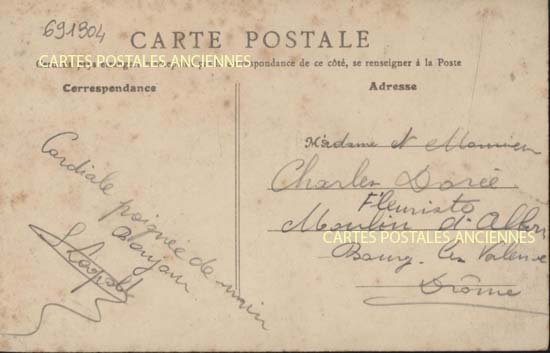 691304
CARTE POSTALE
CARTES POSTALES ANCIENNES
de ce côté, se renseigner à la Poste
Correspondance
Adresse
Cordiale
poignée de main
Madame et Monsieur
Charles Dorée
Fleuriste
Moulin d'Albon
CARTES POSTALES ANCIENNES
Bourg-les Valence
Drôme